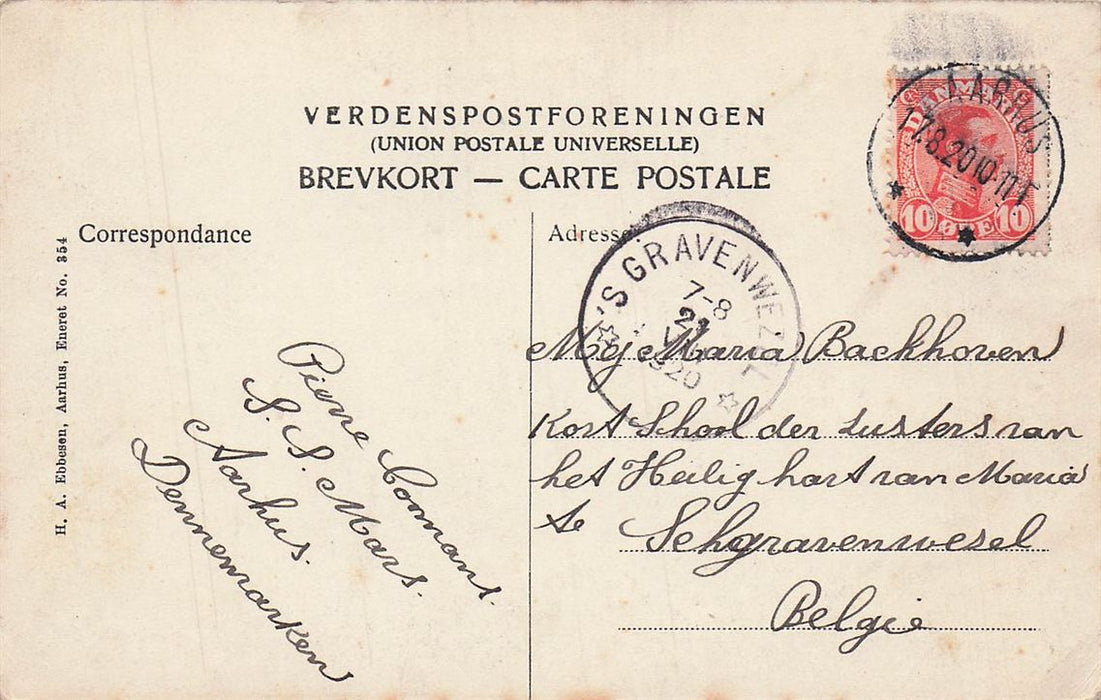 VERDENSPOSTFORENINGEN
(UNION POSTALE UNIVERSELLE)
BREVKORT — CARTE POSTALE
Correspondance
Adresse
H. A. Ebbesen, Aarhus, Eneret No. 354
DANMARK
10 ØRE 10
AARHUS
17.8.20 10-11 F
'S GRAVENWEZEL
7-8
21
1920
Pierre Comans.
S. S. Mars.
Aarhus.
Dennemarken
Mej Maria Backhoven
Kost School der Zusters van
het Heilig hart van Maria
te Schgravenwesel
Belgie